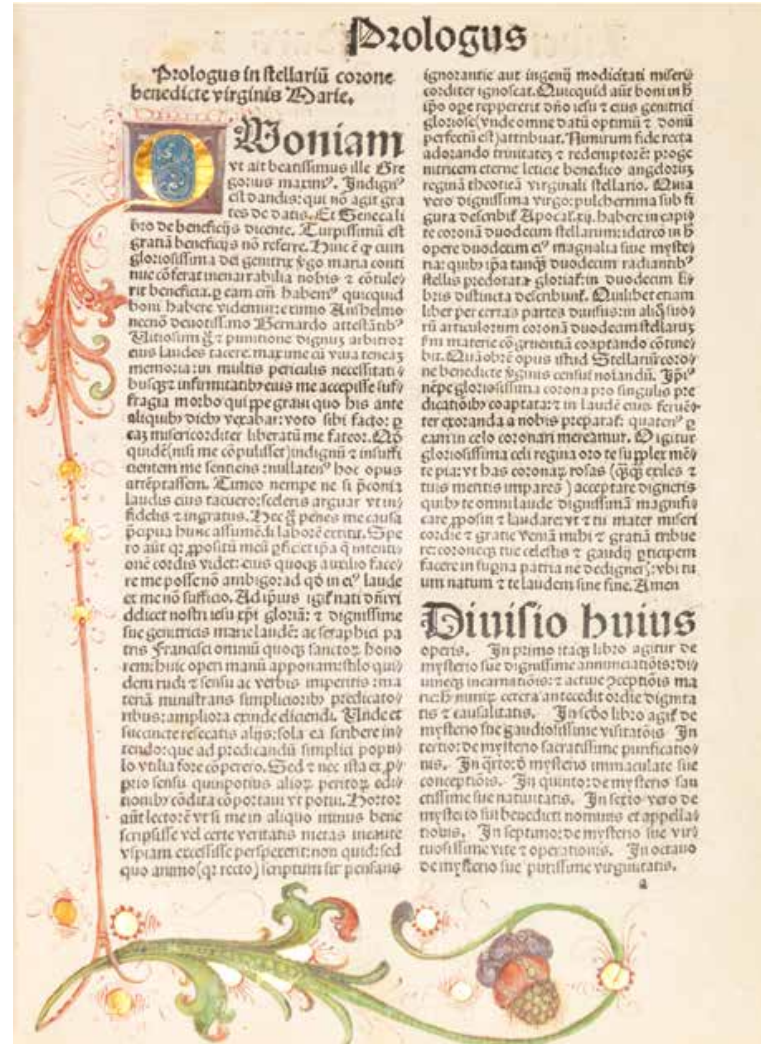 Prologus
Prologus in stellariū corone
benedicte virginis Marie.
QUoniam
vt ait beatissimus ille Gre
gorius maximꝰ. Indignꝰ
est dandis: qui nō agit gra
tes de datis. Et Seneca li
bro de beneficijs dicente. Turpissimū est
gratiā beneficijs nō referre. Hinc ē ꝙ cum
gloriosissima dei genitrix ṽgo maria conti
nue cōferat inenarrabilia nobis ⁊ cōtule⸗
rit beneficia. ꝑ eam em̄ habemꝰ quicquid
boni habere videmur: etimo Anshelmo
necnō deuotissimo Bernardo attestātibꝰ
Vitiosum g̃ ⁊ punitione dignuꝫ arbitror
eius laudes tacere: maxime cū viua teneaꝫ
memoria: in multis periculis necessitati⸗
busqꝫ ⁊ infirmitatibꝰ eius me accepisse suf⸗
fragia morbo qui
aliquibꝰ diebꝰ vexabar: voto sibi facto: ꝑ
eaꝫ misericorditer liberatū me fateor.
quidē (nisi me cōpulisset) indignū ⁊ insuffi
cientem me sentiens: nullatenꝰ hoc opus
attēptassem. Timeo nempe ne si p̄conia
laudis eius tacuero: sceleris arguar vt in⸗
fidelis ⁊ ingratus. Hec g̃ penes me causa
p̄cipua hunc assumēdi laborē extitit. Spe
ro aūt ꝙ ꝓpositū meū ꝑficiet ip̄a q̄ intenti⸗
onē cordis videt: eius quoqꝫ auxilio face⸗
re me posse nō ambigo: ad qd̄ in eiꝰ laude
et me nō sufficio. Ad ip̄ius igit̄ nati dn̄i vi
delicet nostri iesu xp̄i gloriā: ⁊ dignissime
sue genitricis marie laudē: ac seraphici pa
tris Francisci omniū quoqꝫ sanctoꝝ hono
rem: huic operi manū apponam: stilo qui⸗
dem rudi ⁊ sensu ac verbis imperitis: ma
teriā ministrans simplicioribꝰ predicato⸗
ribus: ampliora exinde dicendi. Unde et
succincte resecatis alijs: sola ea scribere in⸗
tendo: que ad predicandū simplici popu⸗
lo vtilia fore cōperero. Sed ⁊ nec ista ex ꝓ⸗
prio sensu quinpotius alioꝝ peritoꝝ edi⸗
tionibꝰ cōdita cōportaui vt potui. Hortor
aūt lectorē vt si me in aliquo minus bene
scripsisse vel certe veritatis metas incaute
vspiam excessisse perspexerit: non quid: sed
quo animo (qꝛ recto) scriptum sit pensans
ignorantie aut ingenij modicitati miseri⸗
corditer ignoscat. Quicquid aūt boni in h̄
ip̄o oꝑe reppererit dn̄o iesu ⁊ eius genitrici
gloriose (vnde omne datū optimū ⁊ donū
perfectū est) attribuat. Nimirum fide recta
adorando trinitatē ⁊ redemptorē: proge
nitricem eterne leticie benedico angeloꝝ
reginā theoticā virginali stellario. Quia
vero dignissima virgo: pulcherrima sub fi
gura describit̄ Apocal. xij. habere in capi
te coronā duodecim stellarum: idcirco in h̄
opere duodecim eiꝰ magnalia siue myste⸗
ria: quibꝰ ip̄a tanqꝫ duodecim radiantibꝰ
stellis predotata gloriat̄: in duodecim li⸗
bris distincta describunt̄. Quinlibet etiam
liber per certas partes diuisus: in aliq̄ suo⸗
rū articulorum coronā duodecim stellaꝝ
fm̄ materie cōgruentiā coaptando cōtine⸗
bit. Quāobrē opus istud Stellariū coro⸗
ne benedicte ṽginis censui noīandū. Ip̄i⸗
nēpe gloriosissima corona pro singulis pre
dicatiōibꝰ coaptata: ⁊ in laudē eius feruē⸗
ter exoranda a nobis preparat̄: quatenꝰ ꝑ
eam in celo coronari mereamur. O igitur
gloriosissima celi regina oro te supplex mē⸗
te pia: vt has coronaꝝ rosas (qꝫqꝫ exiles ⁊
tuis meritis impares) acceptare digneris
quibꝰ te omni laude dignissimā magnifi⸗
care ꝓposui ⁊ laudare: vt ⁊ tu mater miseri
cordie ⁊ gratie veniā mihi ⁊ gratiā tribue
re: coroneqꝫ tue celestis ⁊ gaudij ꝑticipem
facere in suꝑna patria ne dedigneris: vbi tu
um natum ⁊ te laudem sine fine. Amen
Diuisio huius
operis. In primo itaqꝫ libro agitur de
mysterio sue dignissime annunciatiōis: di⸗
uineqꝫ incarnatiōis: ⁊ actiue ꝯceptiōis ma
rie: h̄ nimiꝝ cetera antecedit ordīe dignita
tis ⁊ causalitatis. In scd̄o libro agit̄ de
mysterio sue gaudiosissime visitatōis In
tertio: de mysterio sacratissime purificatio⸗
nis. In q̄rto: d̄ mysterio immaculate sue
conceptiōis. In quinto: de mysterio san
ctissime sue natiuitatis. In sexto vero de
mysterio sui benedicti nominis et appella⸗
tionis. In septimo: de mysterio sue vir⸗
tuosissime vite ⁊ operationis. In octauo
de mysterio sue purissime virginitatis.
a